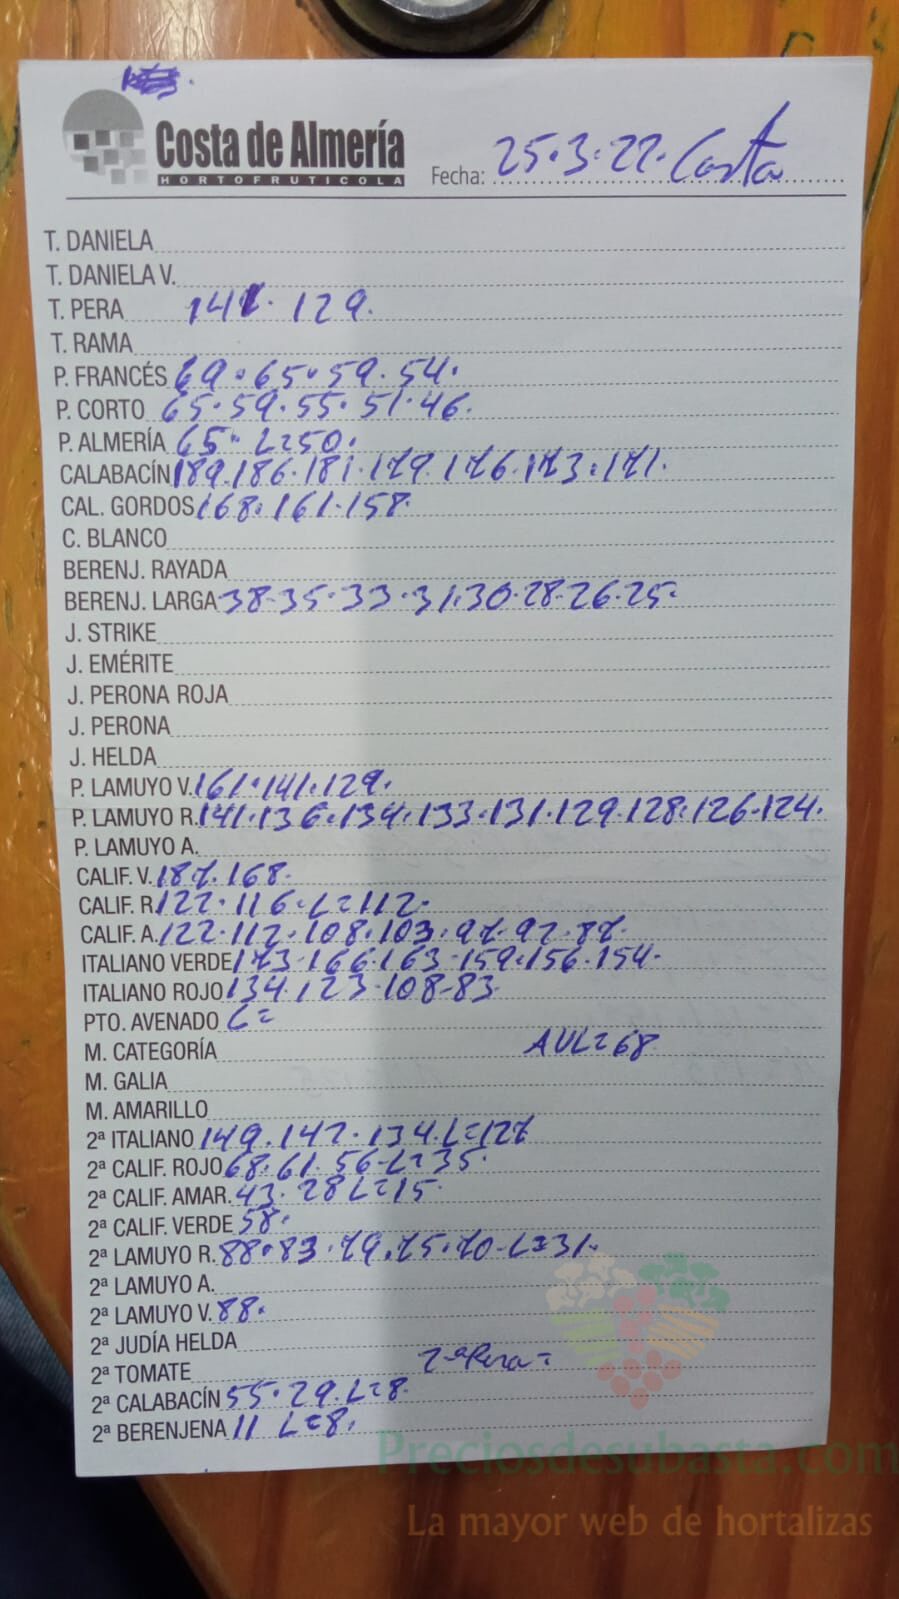 Costa de Almería
HORTOFRUTICOLA
Fecha: 25.3.22. Costa
T. DANIELA
T. DANIELA V.
T. PERA 141. 129.
T. RAMA
P. FRANCÉS 69.65.59.54.
P. CORTO 65.59.55.51.46.
P. ALMERÍA 65. L=50.
CALABACÍN 189.186.181.179.176.173.171.
CAL. GORDOS 168.161.158.
C. BLANCO
BERENJ. RAYADA
BERENJ. LARGA 38.35.33.31.30.28.26.25.
J. STRIKE
J. EMÉRITE
J. PERONA ROJA
J. PERONA
J. HELDA
P. LAMUYO V. 161.141.129.
P. LAMUYO R. 141.136.134.133.131.129.128.126.124.
P. LAMUYO A.
CALIF. V. 187.168.
CALIF. R. 122.116.L=112.
CALIF. A. 122.112.108.103.97.92.87.
ITALIANO VERDE 173.166.163.159.156.154.
ITALIANO ROJO 134.123.108-83
PTO. AVENADO L=
M. CATEGORÍA AVL=68
M. GALIA
M. AMARILLO
2ª ITALIANO 149.142.134.L=127
2ª CALIF. ROJO 68.61.56-L=35.
2ª CALIF. AMAR. 43.28 L=15.
2ª CALIF. VERDE 58.
2ª LAMUYO R. 88.83.79.75.70-L=31.
2ª LAMUYO A.
2ª LAMUYO V. 88.
2ª JUDÍA HELDA
2ª TOMATE 2ª Pera=
2ª CALABACÍN 55.29.L=8.
2ª BERENJENA 11 L=8.
Preciosdesubasta.com
La mayor web de hortalizas